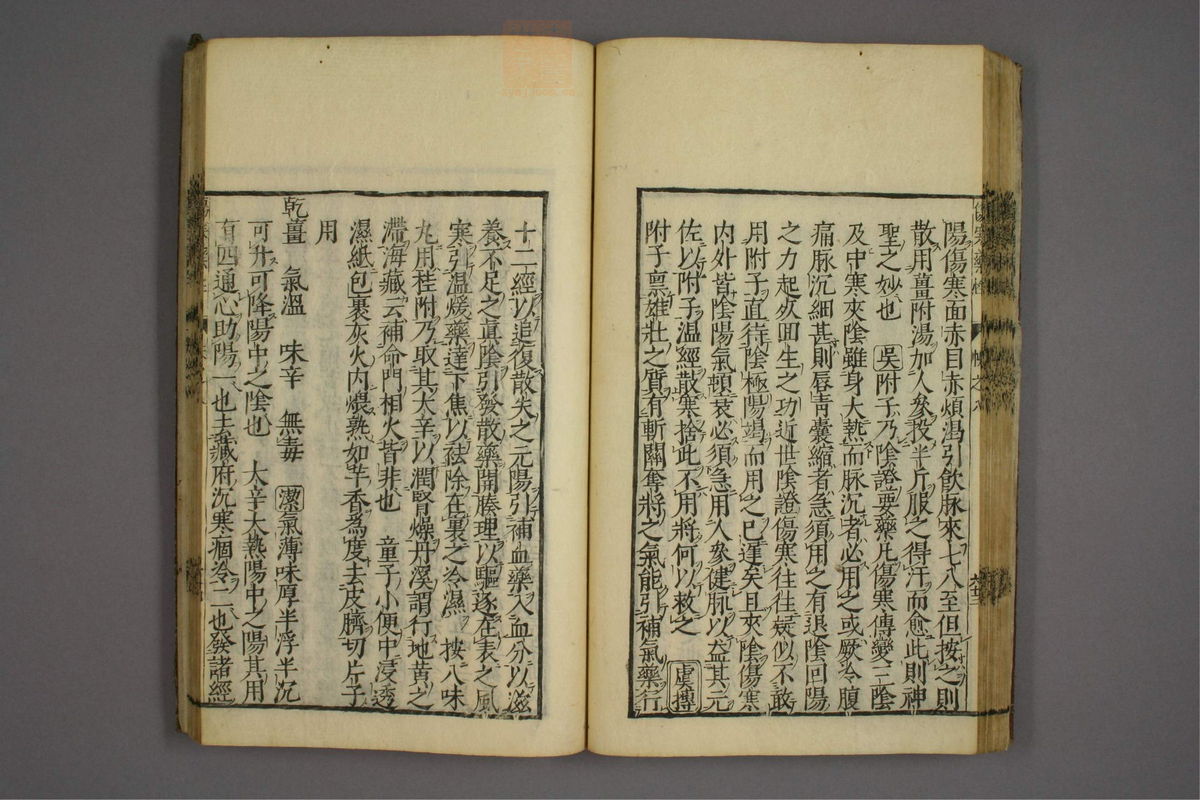 陽傷寒面赤目赤煩渴引飲脉來七八至但按之則
散用薑附湯加人參投半斤服之得汗而愈此則神
聖之妙也 吳附子乃陰證要藥凡傷寒傳變三陰
及中寒夾陰雖身大熱而脉沉者必用之或厥冷腹
痛脉沉細甚則唇青囊縮者急須用之有退陰回陽
之力起死回生之功近世陰證傷寒往往疑似不敢
用附子直待陰極陽竭而用之已遲矣且夾陰傷寒
内外皆陰陽氣頓衰必須急用人參健脉以益其元
佐以附子溫經散寒捨此不用將何以救之 虞摶
附子禀雄壯之質有斬關奪將之氣能引補氣藥行
十二經以追復散失之元陽引補血藥入血分以滋
養不足之眞陰引發散藥開腠理以驅逐在表之風
寒引溫煖藥達下焦以祛除在裏之冷濕 按八味
丸用桂附乃取其大辛以潤腎燥丹溪謂行地黄之
滯海藏云補命門相火皆非也 童子小便中浸透
濕紙包裹灰火内煨熟如芋香爲度去皮臍切片子
用
乾薑 氣溫 味辛 無毒 潔氣薄味厚半浮半沉
可升可降陽中之陰也 大辛大熱陽中之陽其用
有四通心助陽一也去藏府沉寒痼冷二也發諸經